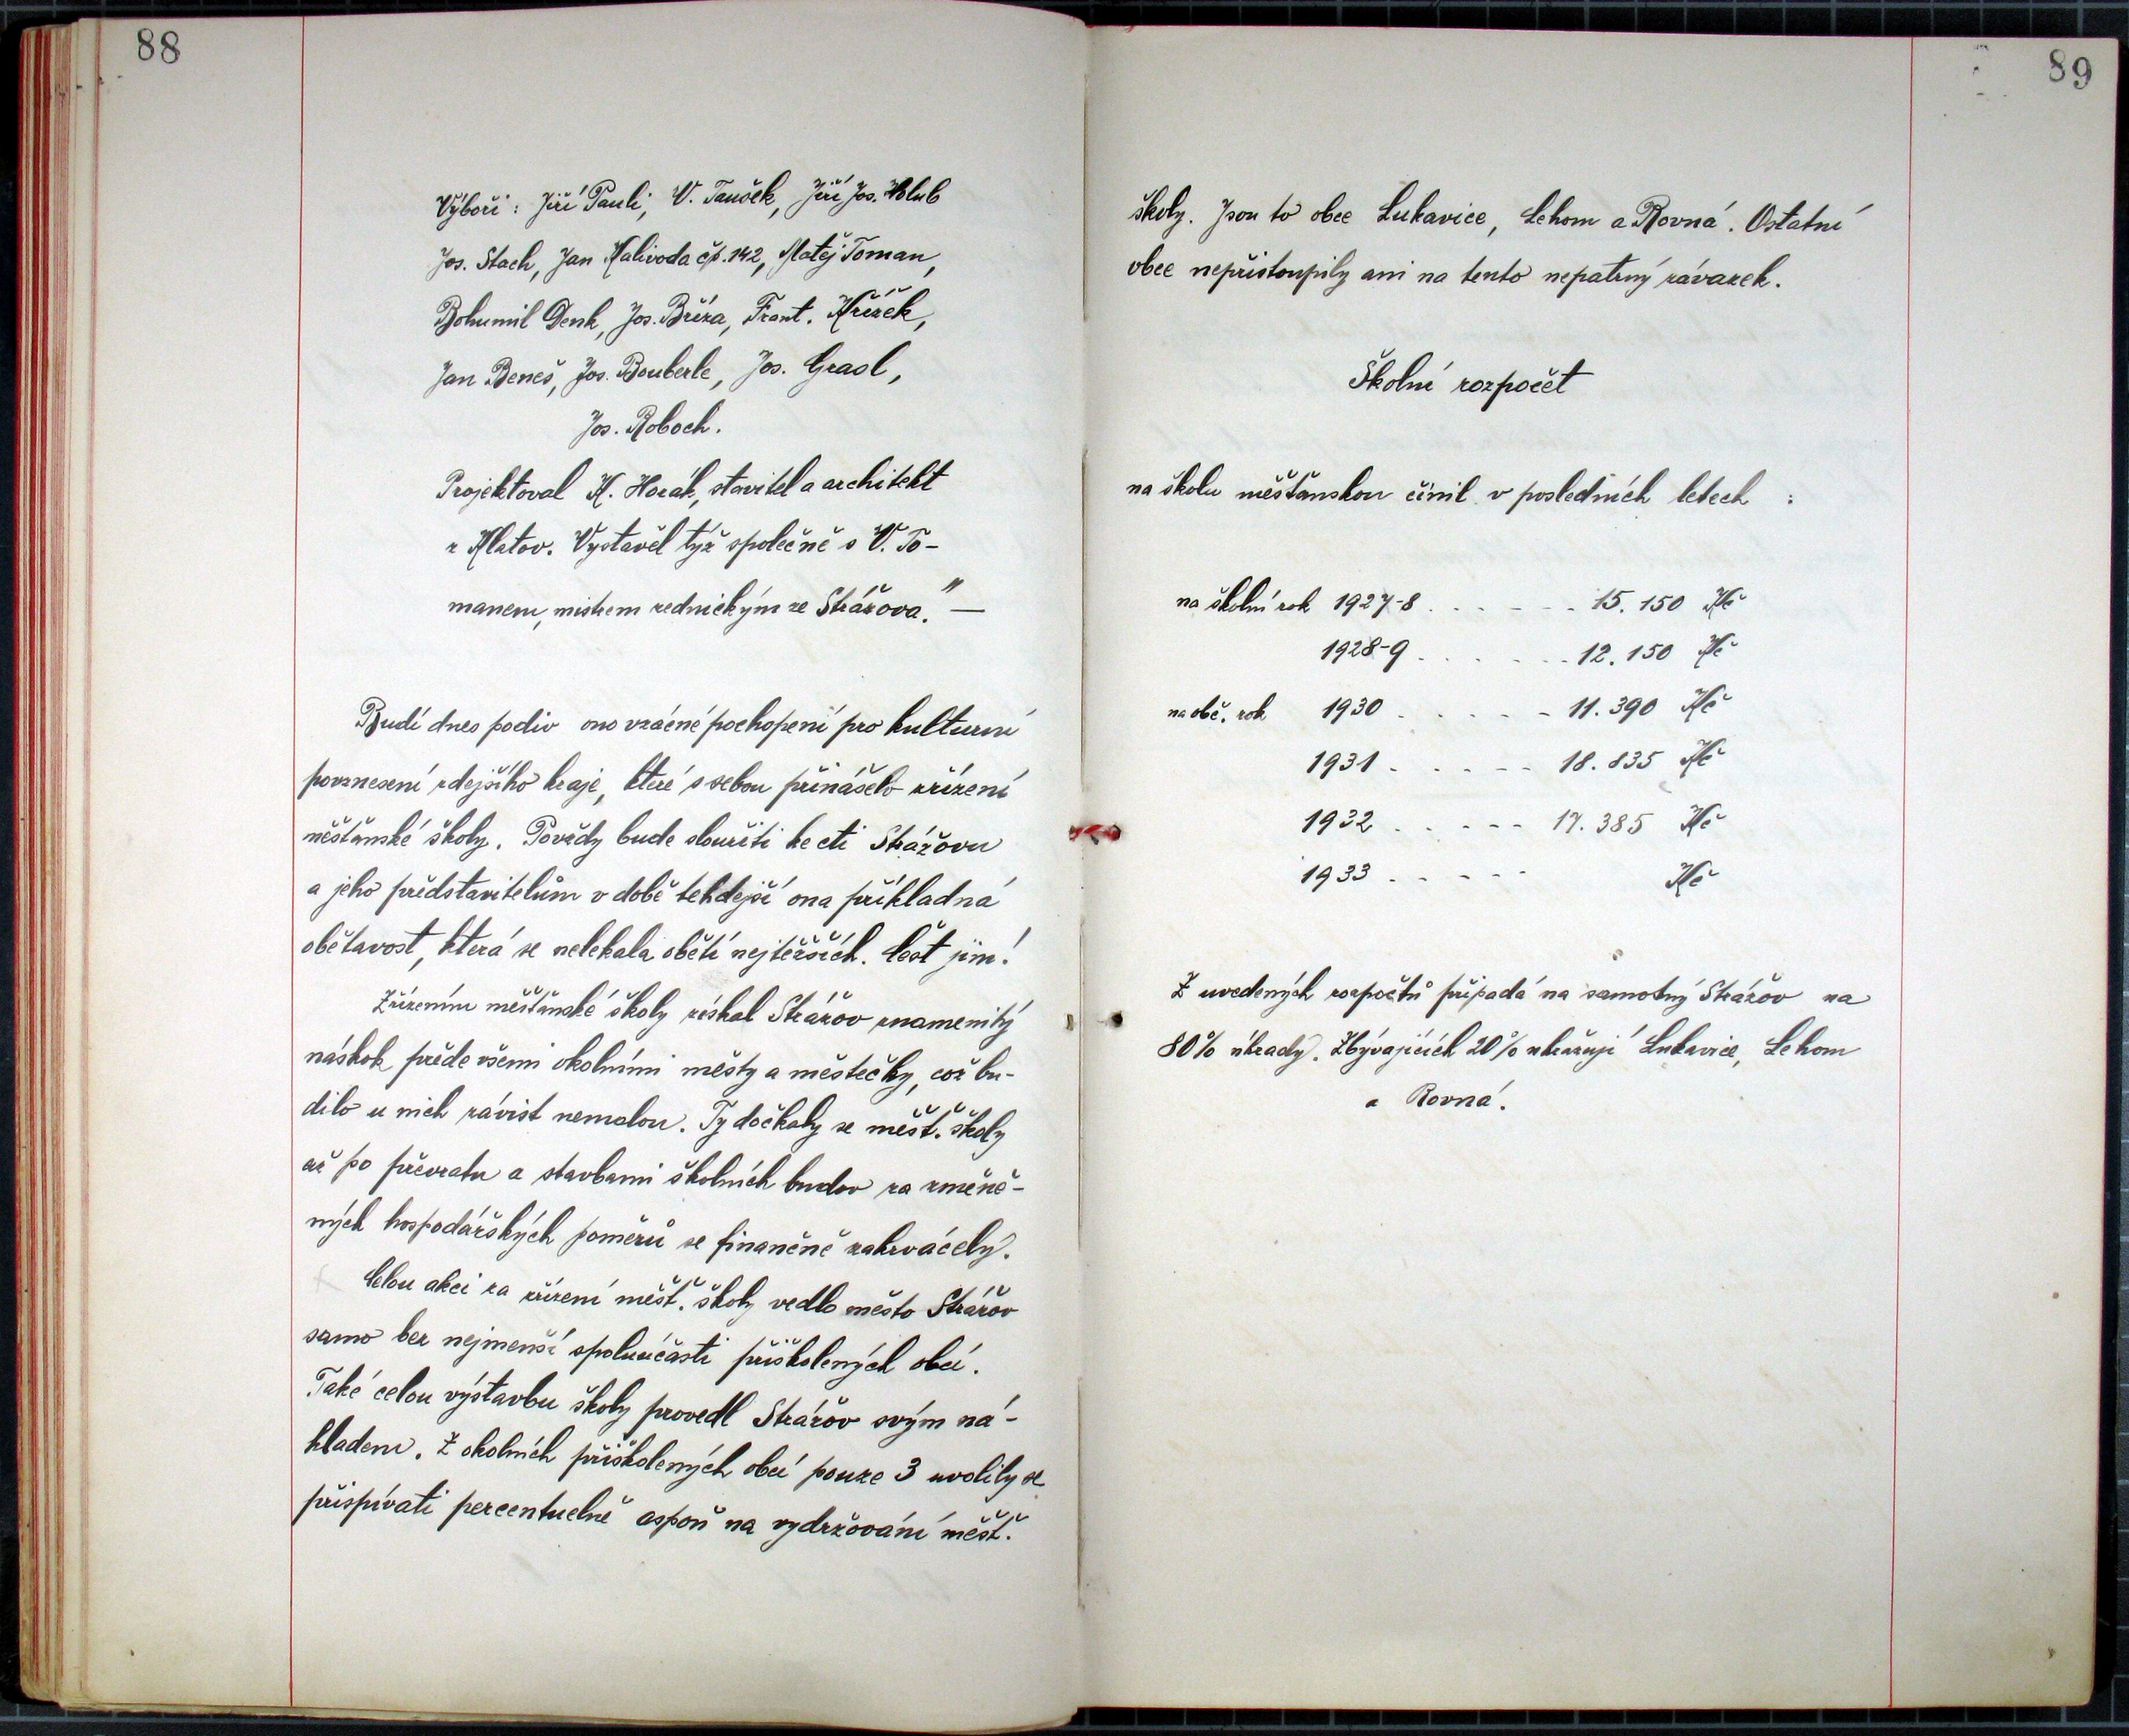 88
Výboři: Jiří Pauli, V. Taušek, Jiří Jos. Holub
Jos. Stach, Jan Kalivoda čp. 142, Matěj Toman,
Bohumil Denk, Jos. Bříza, Frant. Křížek,
Jan Beneš, Jos. Bouberle, Jos. Grasl,
Jos. Roboch.
Projektoval K. Horák, stavitel a architekt
z Klatov. Vystavěl týž společně s V. To-
manem, mistrem zednickým ze Strážova." —
Budí dnes podiv ono vzácné pochopení pro kulturní
povznesení zdejšího kraje, které s sebou přinášelo zřízení
měšťanské školy. Povždy bude sloužiti ke cti Strážovu
a jeho představitelům v době tehdejší ona příkladná
obětavost, která se nelekala obětí nejtěžších. Čest jim!
Zřízením měšťanské školy získal Strážov znamenitý
náskok přede všemi okolními městy a městečky, což bu-
dilo u nich závist nemalou. Ty dočkaly se měšť. školy
až po převratu a stavbami školních budov za změně-
ných hospodářských poměrů se finančně zakrvácely.
Celou akci za zřízení měšť. školy vedlo město Strážov
samo bez nejmenší spoluúčasti přiškolených obcí.
Také celou výstavbu školy provedl Strážov svým ná-
kladem. Z okolních přiškolených obcí pouze 3 uvolily se
přispívati percentuelně aspoň na vydržování měšť.
89
školy. Jsou to obce Lukavice, Lehom a Rovná. Ostatní
obce nepřistoupily ani na tento nepatrný závazek.
Školní rozpočet
na školu měšťanskou činil v posledních letech :
na školní rok 1927-8 . . - - - - 15.150 Kč
1928-9 . . . . - - 12.150 Kč
na obč. rok 1930 . . . . - - 11.390 Kč
1931 . . - - - 18.835 Kč
1932 . . - - - 17.385 Kč
1933 . . - - - Kč
Z uvedených rozpočtů připadá na samotný Strážov za
80% úhrady. Zbývajících 20% uhražují Lukavice, Lehom
a Rovná.